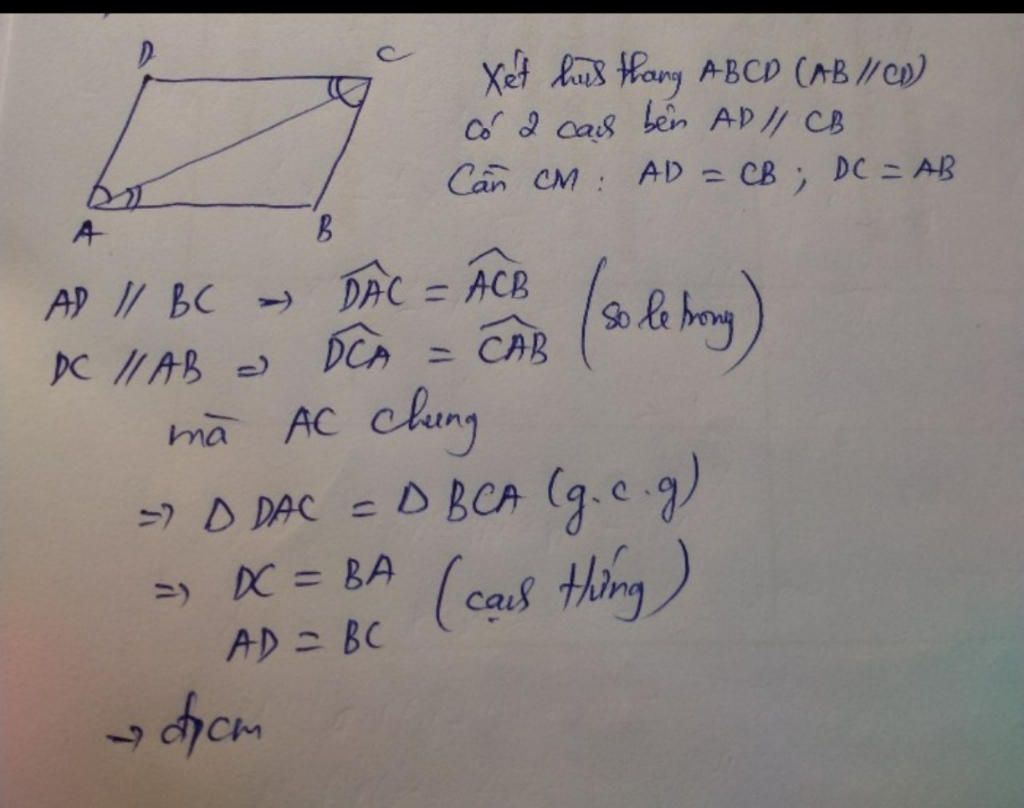 D
C
A
B
Xét hìs thang ABCD (AB // CD)
có 2 cạs bên AD // CB
Cần CM : AD = CB ; DC = AB
AD // BC → \widehat{DAC} = \widehat{ACB}
DC // AB ⇒ \widehat{DCA} = \widehat{CAB} (so le trong)
mà AC chung
⇒ Δ DAC = Δ BCA (g.c.g)
⇒ DC = BA (cạs t/ứng)
AD = BC
→ đpcm